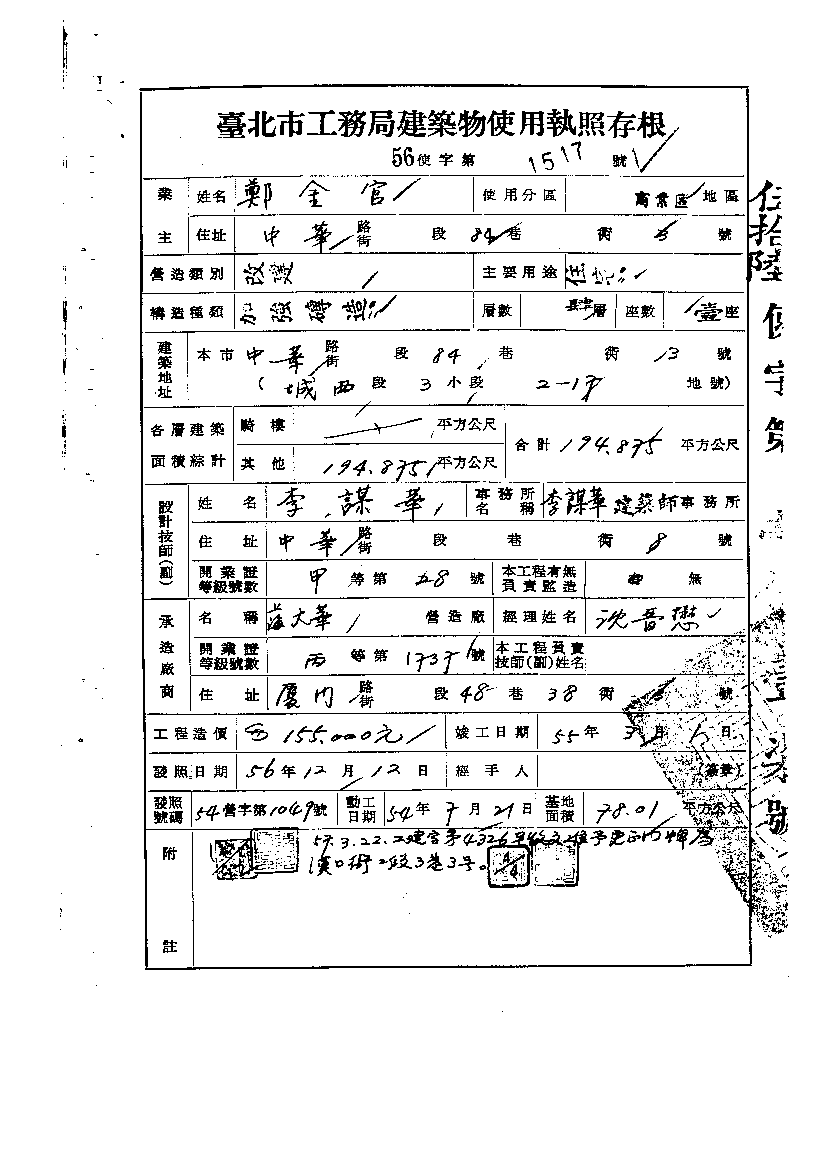 臺北市工務局建築物使用執照存根
56使字第 1517 號
業主 姓名 鄭金官 使用分區 商業區 地區
住址 中華 路街 段 84 巷 衖 號
營造類別 改建 主要用途 住宅
構造種類 加強磚造 層數 肆層 座數 壹座
建築地址 本市 中華 路街 段 84 巷 衖 13 號
(城西 段 3 小段 地號)
各層建築面積綜計 騎樓 平方公尺 合計 194.875 平方公尺
其他 194.875 平方公尺
設計技師(副) 姓名 李謀華 事務所名稱 李謀華建築師事務所
住址 中華 路街 段 巷 衖 8 號
開業證等級號數 甲 等第 號 本工程有無負責監造 無
承造廠商 名稱 大華 營造廠 經理姓名 沈晉懋
開業證等級號數 丙 等第 號 本工程負責技師(副)姓名
住址 廈門 路街 段 48 巷 38 衖 號
工程造價 155.000元 竣工日期 55年 3 月 日
發照日期 56年 12 月 12 日 經手人 (簽章)
發照號碼 54營字第1049號 動工日期 54年 7 月 21 日 基地面積 78.01 平方公尺
附註 57.3.22.
漢口街二段3巷3号。
伍拾陸使字第
號